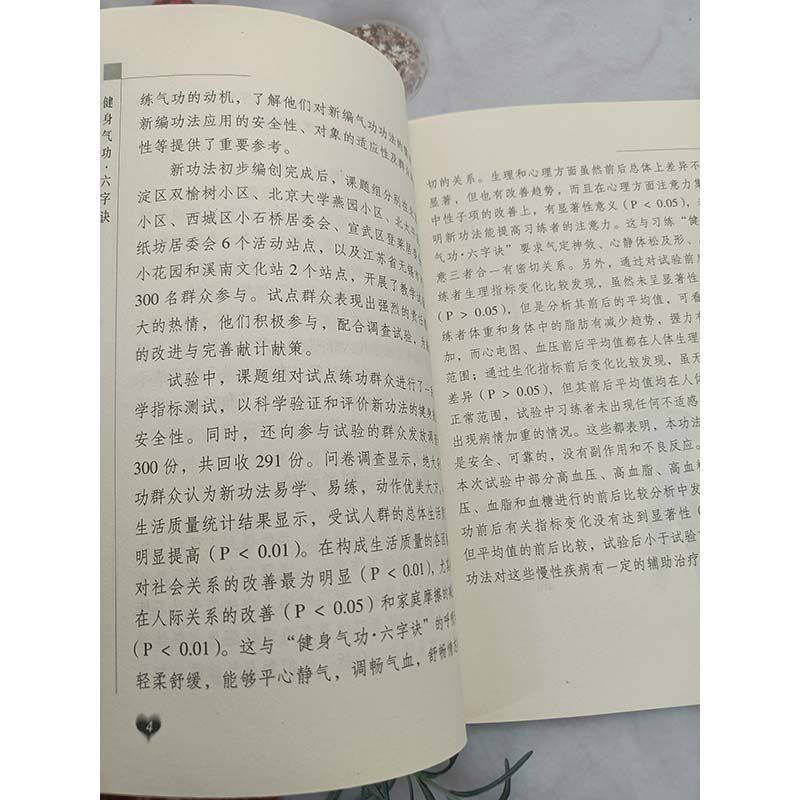 健身气功·六字诀
练气功的动机，了解他们对新编气功功法的
新编功法应用的安全性、对象的适应性及
性等提供了重要参考。
新功法初步编创完成后，课题组分别在
淀区双榆树小区、北京大学燕园小区、北
小区、西城区小石桥居委会、宣武区登莱居
纸坊居委会6个活动站点，以及江苏省无锡
小花园和溪南文化站2个站点，开展了教学
300名群众参与。试点群众表现出强烈的责任
大的热情，他们积极参与，配合调查试验，
的改进与完善献计献策。
试验中，课题组对试点练功群众进行了一
学指标测试，以科学验证和评价新功法的健身
安全性。同时，还向参与试验的群众发放调
300份，共回收291份。问卷调查显示，绝大
功群众认为新功法易学、易练，动作优美大
生活质量统计结果显示，受试人群的总体生活
明显提高（P < 0.01）。在构成生活质量的各
对社会关系的改善最为明显（P < 0.01），
在人际关系的改善（P < 0.05）和家庭摩擦的
（P < 0.01）。这与“健身气功·六字诀”的呼
轻柔舒缓，能够平心静气，调畅气血，舒畅情
4
切的关系。生理和心理方面虽然前后总体上差异不
显著，但也有改善趋势，而且在心理方面注意力集
中性子项的改善上，有显著性意义（P < 0.05），
明新功法能提高习练者的注意力。这与习练“健
气功·六字诀”要求气定神敛、心静体松及形、
意三者合一有密切关系。另外，通过对试验前
练者生理指标变化比较发现，虽然未呈显著性
（P > 0.05），但是分析其前后的平均值，可看
练者体重和身体中的脂肪有减少趋势，握力有
加，而心电图、血压前后平均值都在人体生理
范围；通过生化指标前后变化比较发现，虽无
差异（P > 0.05），但其前后平均值均在人体
正常范围，试验中习练者未出现任何不适感
出现病情加重的情况。这些都表明，本功法
是安全、可靠的，没有副作用和不良反应。
本次试验中部分高血压、高血脂、高血糖
压、血脂和血糖进行的前后比较分析中发
功前后有关指标变化没有达到显著性（
但平均值的前后比较，试验后小于试验
功法对这些慢性疾病有一定的辅助治疗